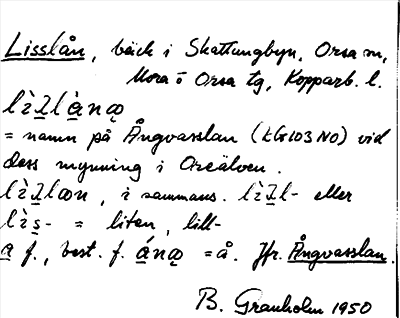 Lisslån, bäck i Skattungbyn, Orsa sn,
Mora o Orsa tg, Kopparb. l.
= namn på Ångvasslan (kG103 NO) vid
dess mynning i Oreälven.
i sammans. eller
= liten, lill-
f., best. f. = å. Jfr. Ångvasslan.
B. Granholm 1950